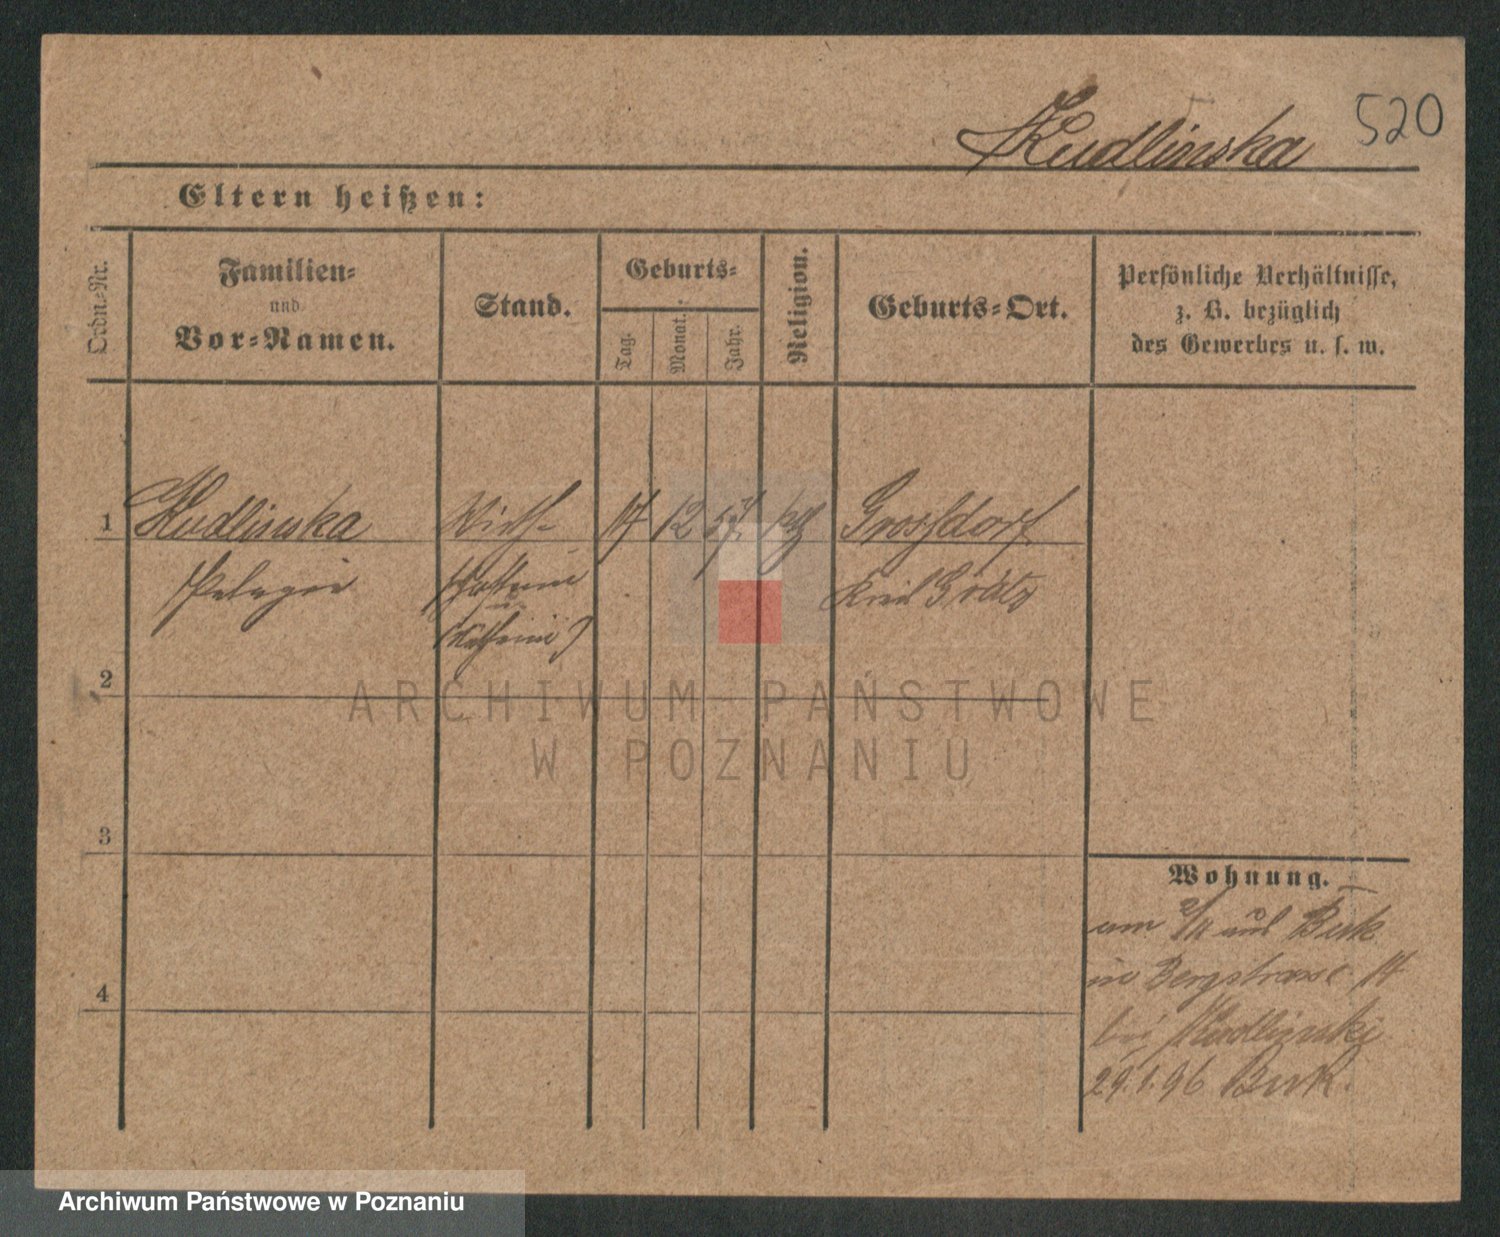 Kudlinska 520
Eltern heißen:
Ordn=Nr.
Familien=
und
Vor=Namen.
Stand.
Geburts=
Tag.
Monat.
Jahr.
Religion.
Geburts=Ort.
Persönliche Verhältnisse,
z. B. bezüglich
des Gewerbes u. s. w.
1 Kudlinska Wirth- 17 12 57 kth Grossdorf
Pelagia schafterin Kreis Grätz
2
3
4
ARCHIWUM PAŃSTWOWE
W POZNANIU
Wohnung.
am 2/11 aus Buk
in Bergstrasse 14
bei Kudlinski
29.1.96 Buk.
Archiwum Państwowe w Poznaniu